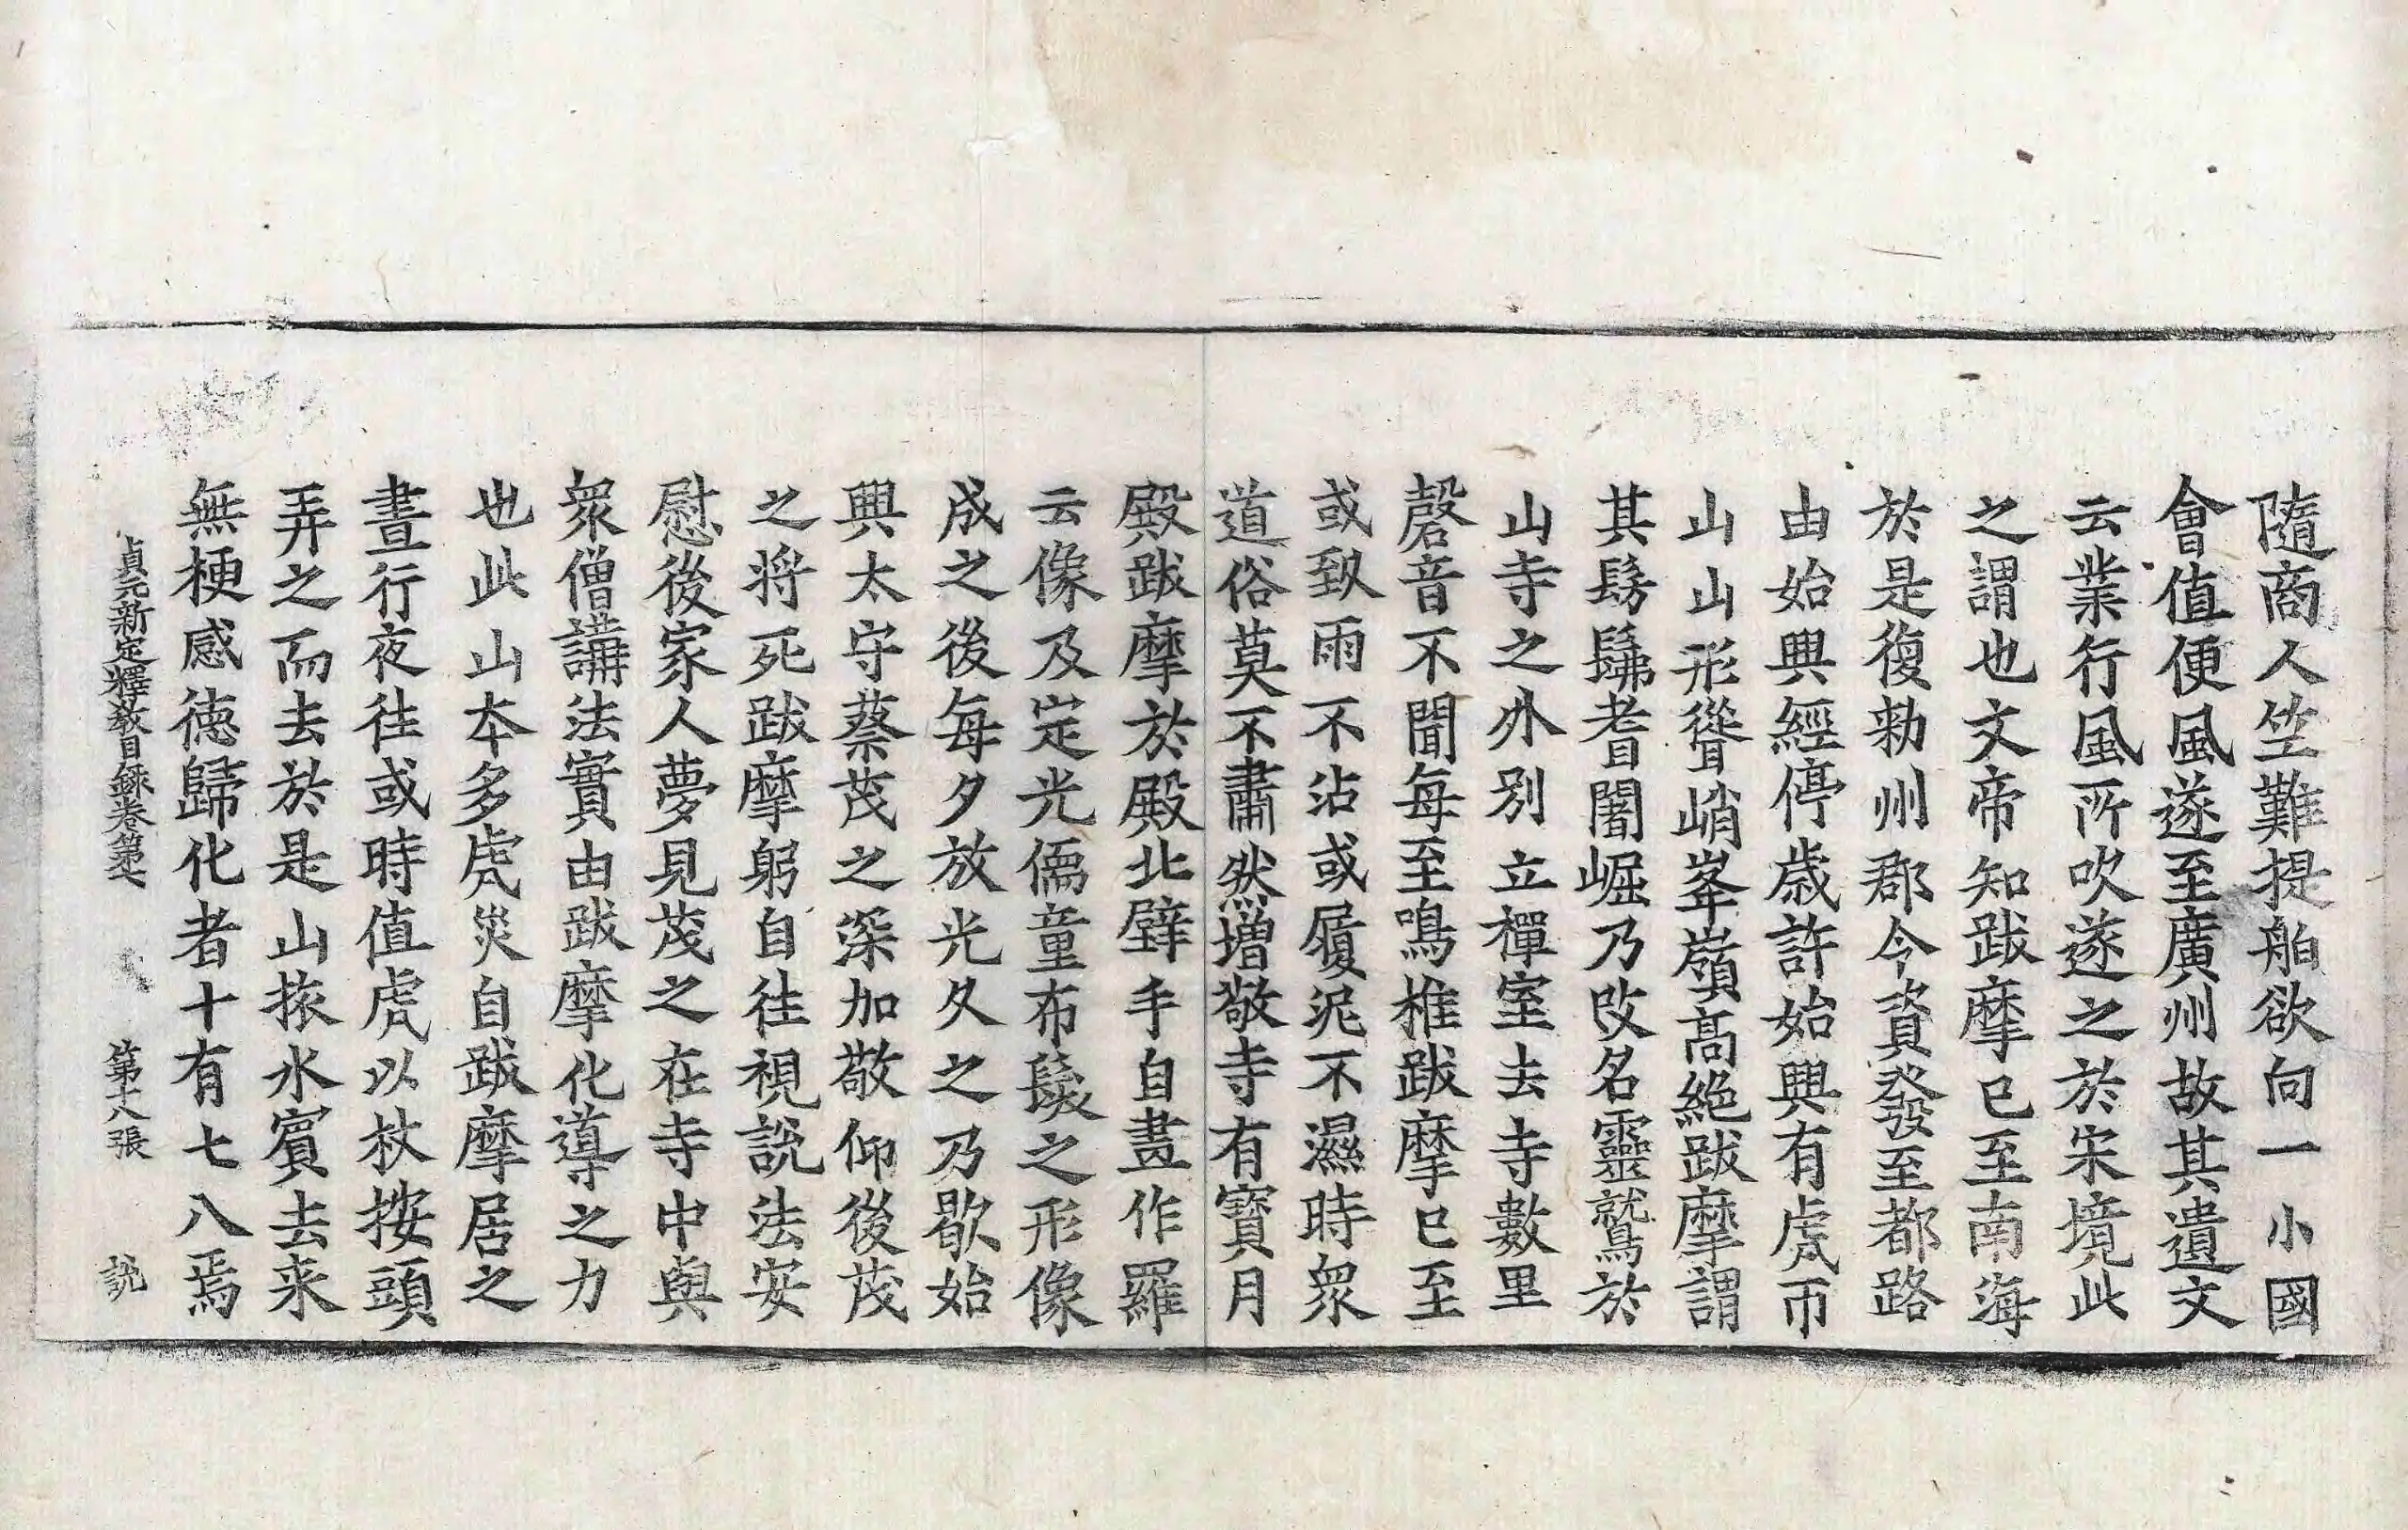 隨商人竺難提舶欲向一小國
會值便風遂至廣州故其遺文
云業行風所吹遂之於宋境此
之謂也文帝知跋摩已至南海
於是復勑州郡令資發至都路
由始興經停歲許始興有虎市
山山形聳峭峯嶺高絕跋摩謂
其髣髴耆闍崛乃改名靈鷲於
山寺之外別立禪室去寺數里
磬音不聞每至鳴椎跋摩已至
或致雨不沾或履泥不濕時眾
道俗莫不肅然增敬寺有寶月
殿跋摩於殿北壁手自畫作羅
云像及定光儒童布髮之形像
成之後每夕放光久之乃歇始
興太守蔡茂之深加敬仰後茂
之將死跋摩躬自往視說法安
慰後家人夢見茂之在寺中與
眾僧講法實由跋摩化導之力
也此山本多虎災自跋摩居之
晝行夜往或時值虎以杖按頭
弄之而去於是山旅水賓去来
無梗感德歸化者十有七八焉
貞元新定釋教目録卷第七 第十八張 說